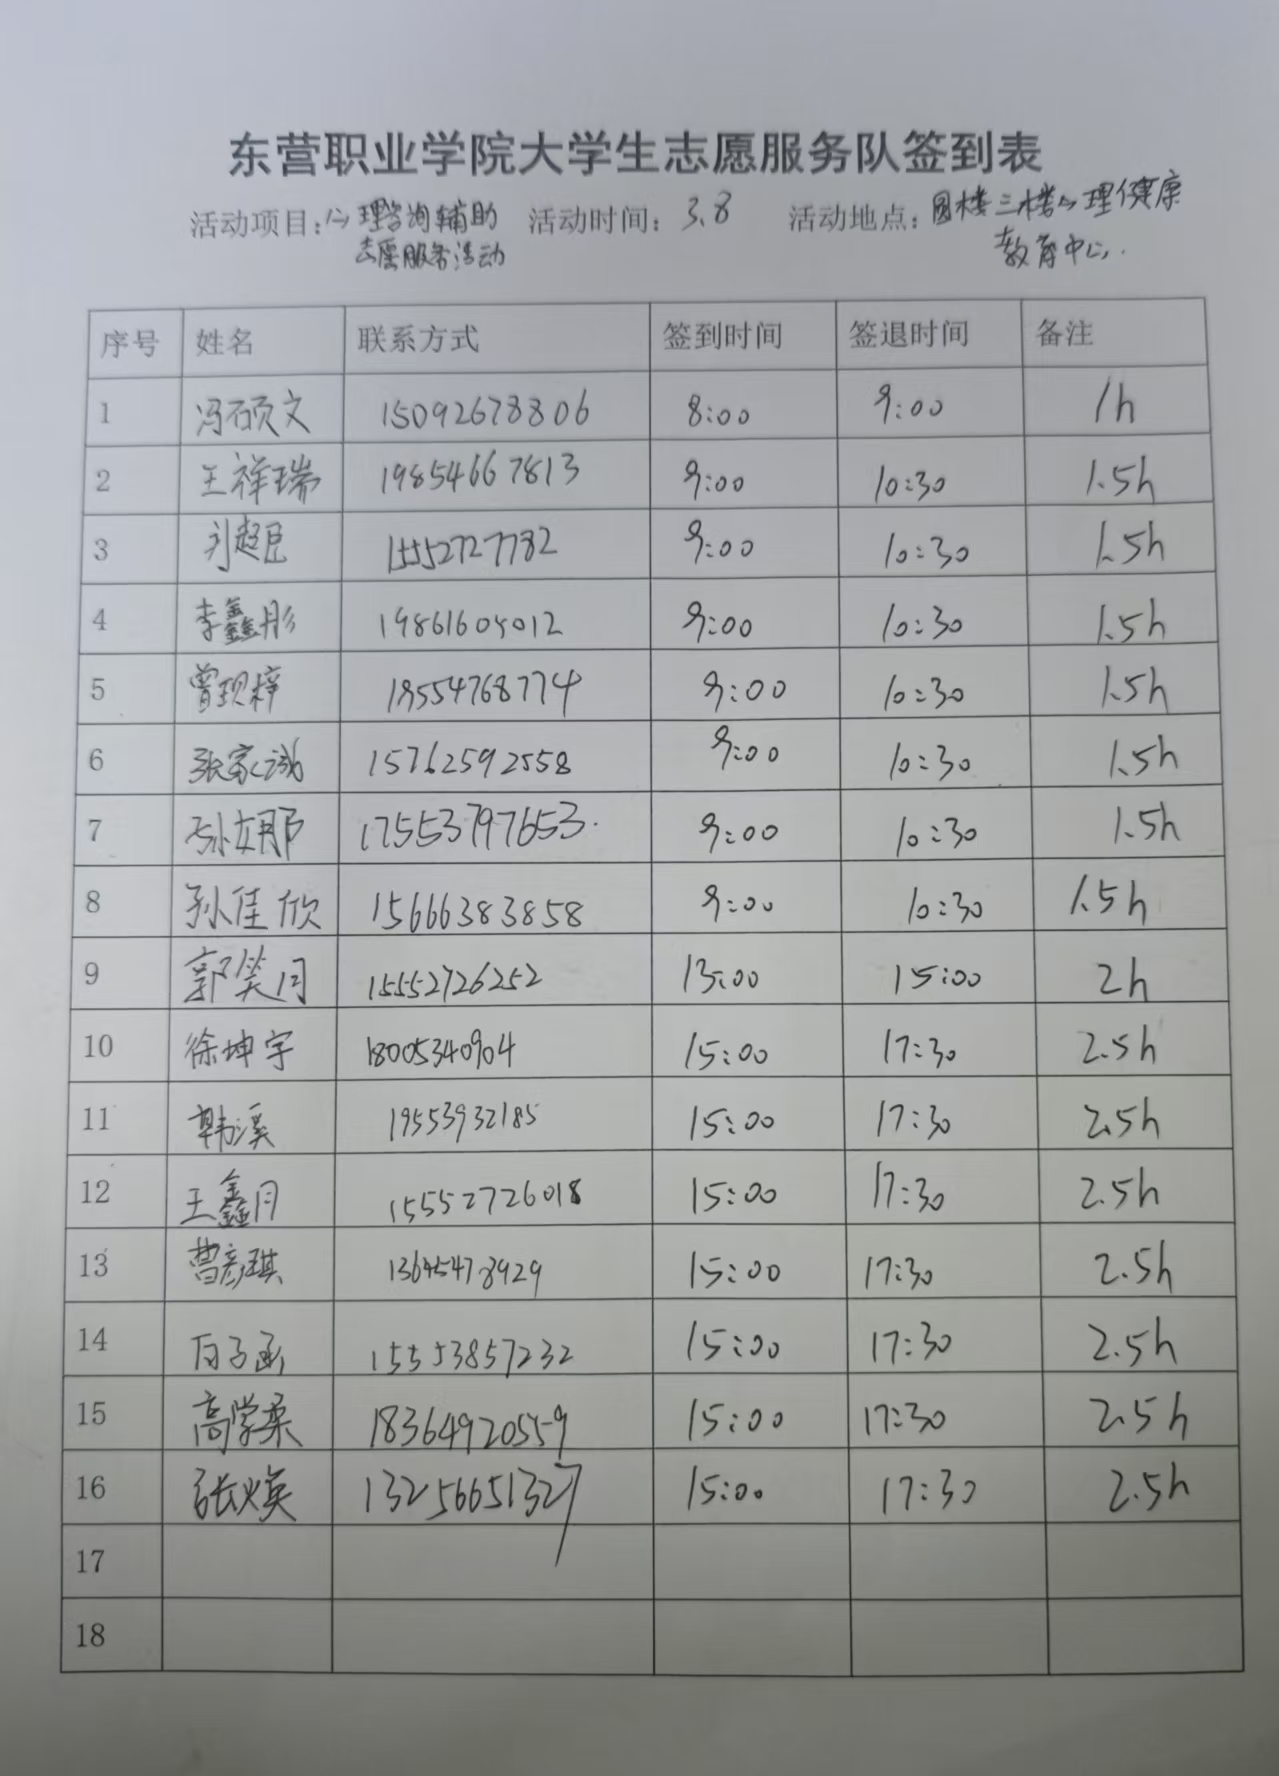 东营职业学院大学生志愿服务队签到表
活动项目：心理咨询辅助 活动时间：3.8 活动地点：圆楼三楼心理健康
志愿服务活动 教育中心.
序号 姓名 联系方式 签到时间 签退时间 备注
1 冯硕文 15092678806 8:00 9:00 1h
2 王祥瑞 19854667813 9:00 10:30 1.5h
3 刘超臣 15552727782 9:00 10:30 1.5h
4 李鑫彤 19861605012 9:00 10:30 1.5h
5 曾现梓 18554768774 9:00 10:30 1.5h
6 张家诚 15762592558 9:00 10:30 1.5h
7 孙娜 17553797653. 9:00 10:30 1.5h
8 孙佳欣 15666383858 9:00 10:30 1.5h
9 郭笑月 15552726252 13:00 15:00 2h
10 徐坤宇 18005340904 15:00 17:30 2.5h
11 韩溪 19553932185 15:00 17:30 2.5h
12 王鑫月 15552726018 15:00 17:30 2.5h
13 曹彦琪 13645478929 15:00 17:30 2.5h
14 子函 15553857232 15:00 17:30 2.5h
15 高学柔 18364920559 15:00 17:30 2.5h
16 张焕 13256651327 15:00 17:30 2.5h
17
18